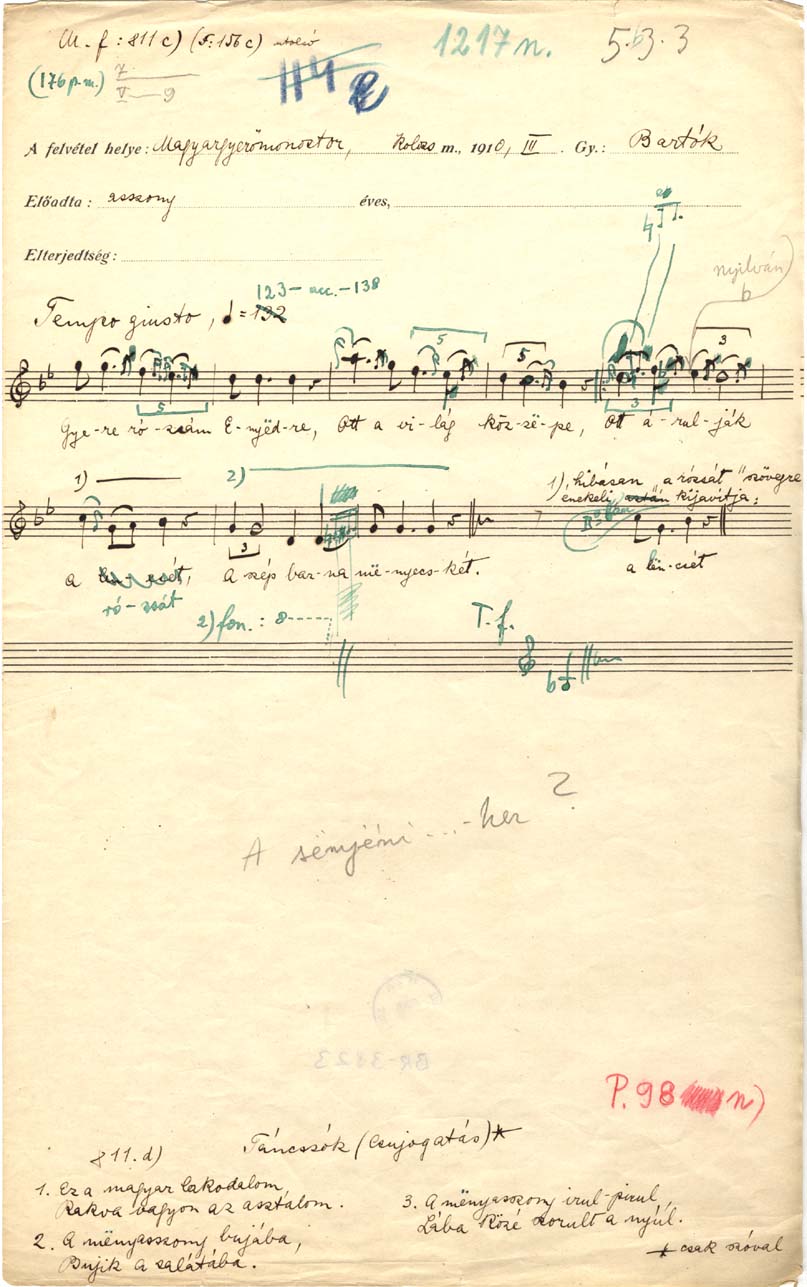 M. f: 811 c) (F: 156 c) utolsó
1217 n.
5.b3.3
(176 p.m.) 7
V — 9
114
A felvétel helye: Magyargyerőmonostor, Kolozs m., 1910, III. Gy.: Bartók
Előadta: asszony éves,
Elterjedtség:
nyilván
b
123 — acc. — 138
Tempo giusto, ♩ = 132
5
5
5
3
Gye-re ró-zsám E-nyëd-re, Ott a vi-lág köz-ze-pe, Ott á-rul-ják
1)
2)
1) hibásan "a rózsát" szövegre
énekeli aztán kijavítja:
3
a len-csét, a szép bar-na më-nyecs-két.
a lën-csét
ró-zsát
2) fon.: 8
T. f.
A sënyéni ...-hez ?
BR-3823
P. 98 n)
811. d) Táncszók (Csujogatás)*
1. Ez a magyar lakodalom,
Rakva vagyon az asztalom.
2. A mënyasszony bújába,
Bujik a salátába.
3. A mënyasszony irul-pirul,
Lába közé szorult a nyúl.
* csak szóval